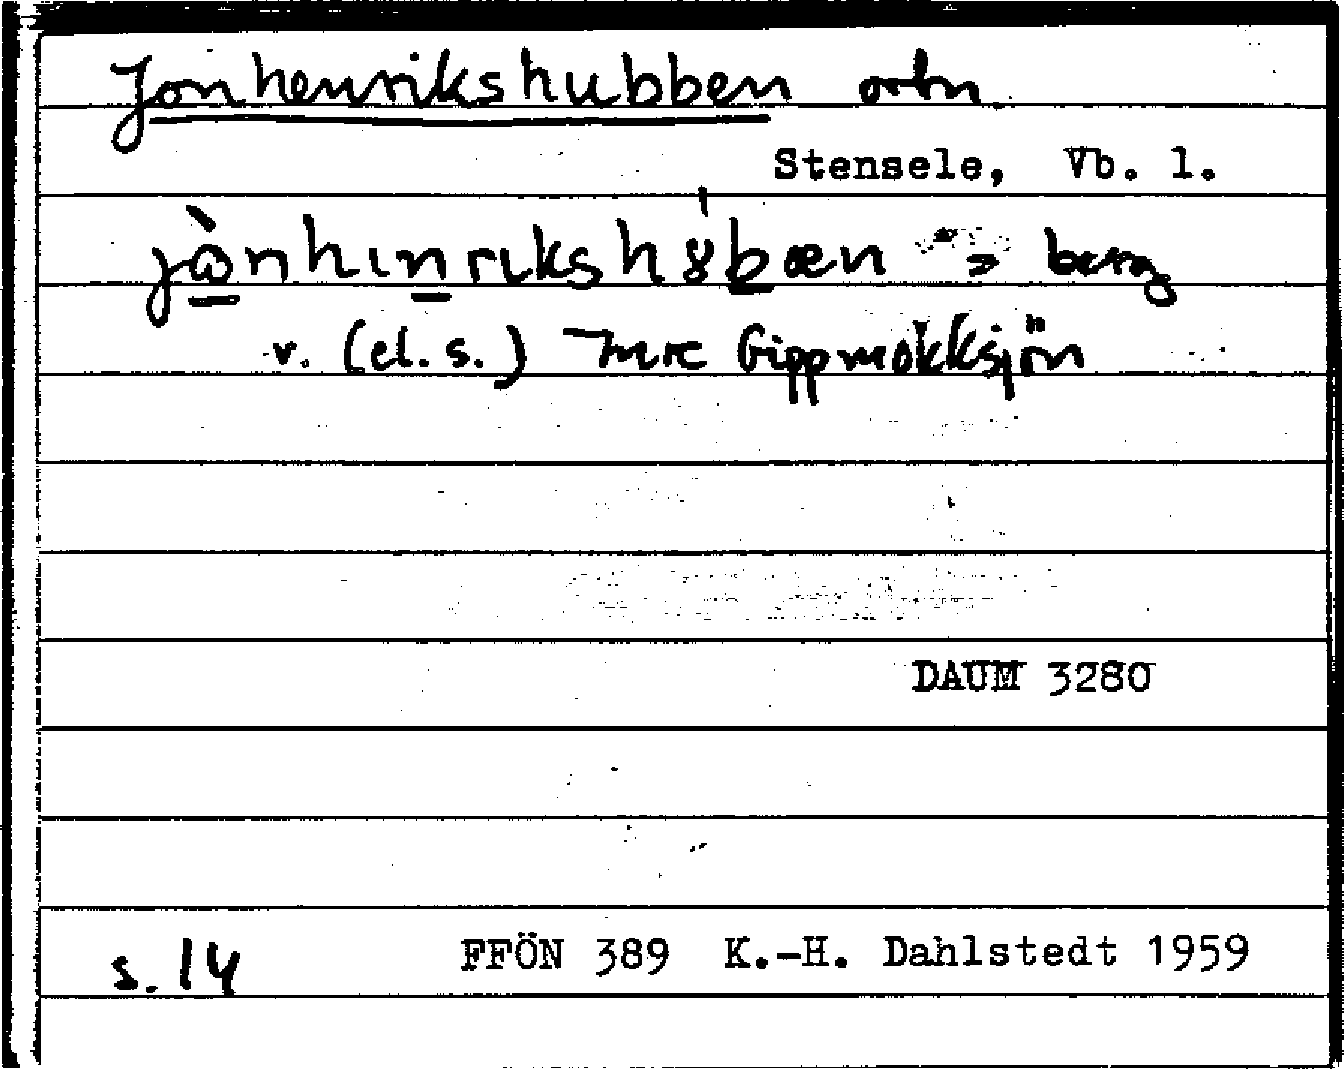 Jonhenrikshubben ortn.
Stensele, Vb. l.
jὼnhınrıkshȣ́bæn berg
v. (el. s.) Inre Gippmokksjön
DAUM 3280
s. 14 FFÖN 389 K.-H. Dahlstedt 1959